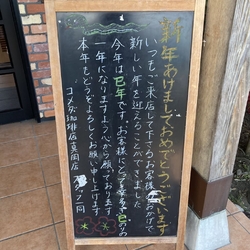 新年あけましておめでとうございます
いつもご来店して下さるお客様のおかげで
新しい年を迎えることができました
今年は巳年です。お客様にとって
一年になりますよう心から願っております
本年もどうぞよろしくお願い申し上げます
コメダ珈琲店真岡店
スタッフ一同